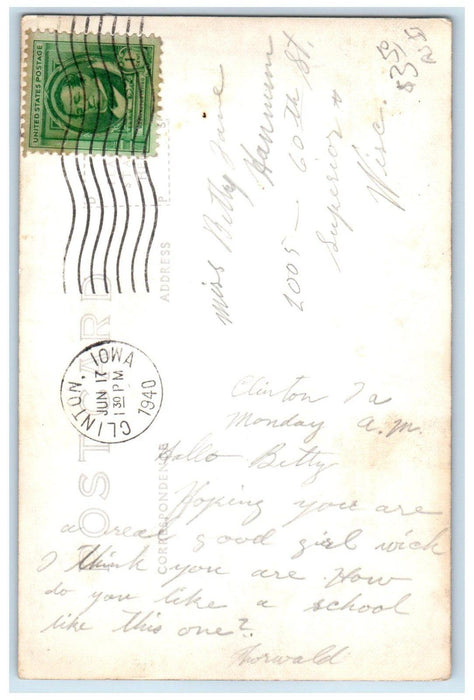 UNITED STATES POSTAGE
$3.50
POST CARD
ADDRESS
CORRESPONDENCE
CLINTON, IOWA
JUN 17
1 30 PM
1940
Miss Betty Jane
Hannum
2005 - 60th St.
Superior
Wisc.
Clinton Ia
Monday A.M.
Hallo Betty
Hoping you are
a real good girl wich
I think you are How
do you like a school
like this one?
Thorwald